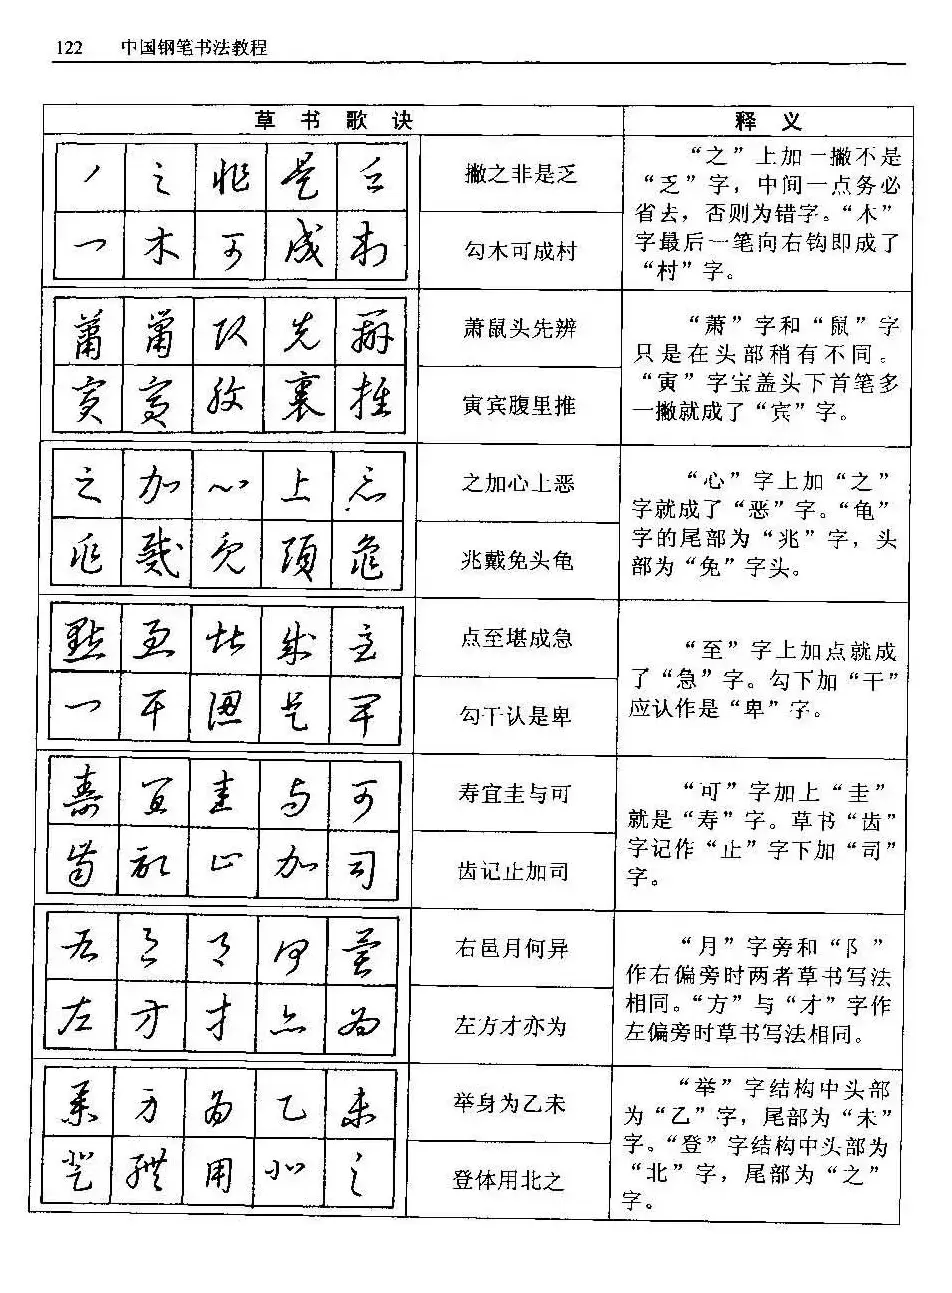 122 中国钢笔书法教程
草书歌诀 释义
丿之非是乏
撇之非是乏
乛木可成村
勾木可成村
“之”上加一撇不是
“乏”字，中间一点务必
省去，否则为错字。“木”
字最后一笔向右钩即成了
“村”字。
萧鼠头先辨
萧鼠头先辨
寅宾腹里推
寅宾腹里推
“萧”字和“鼠”字
只是在头部稍有不同。
“寅”字宝盖头下首笔多
一撇就成了“宾”字。
之加心上恶
之加心上恶
兆戴免头龟
兆戴免头龟
“心”字上加“之”
字就成了“恶”字。“龟”
字的尾部为“兆”字，头
部为“免”字头。
点至堪成急
点至堪成急
乛干认是卑
勾干认是卑
“至”字上加点就成
了“急”字。勾下加“干”
应认作是“卑”字。
寿宜圭与可
寿宜圭与可
齿记止加司
齿记止加司
“可”字加上“圭”
就是“寿”字。草书“齿”
字记作“止”字下加“司”
字。
右邑月何异
右邑月何异
左方才亦为
左方才亦为
“月”字旁和“阝”
作右偏旁时两者草书写法
相同。“方”与“才”字作
左偏旁时草书写法相同。
举身为乙未
举身为乙未
登体用北之
登体用北之
“举”字结构中头部
为“乙”字，尾部为“未”
字。“登”字结构中头部为
“北”字，尾部为“之”
字。